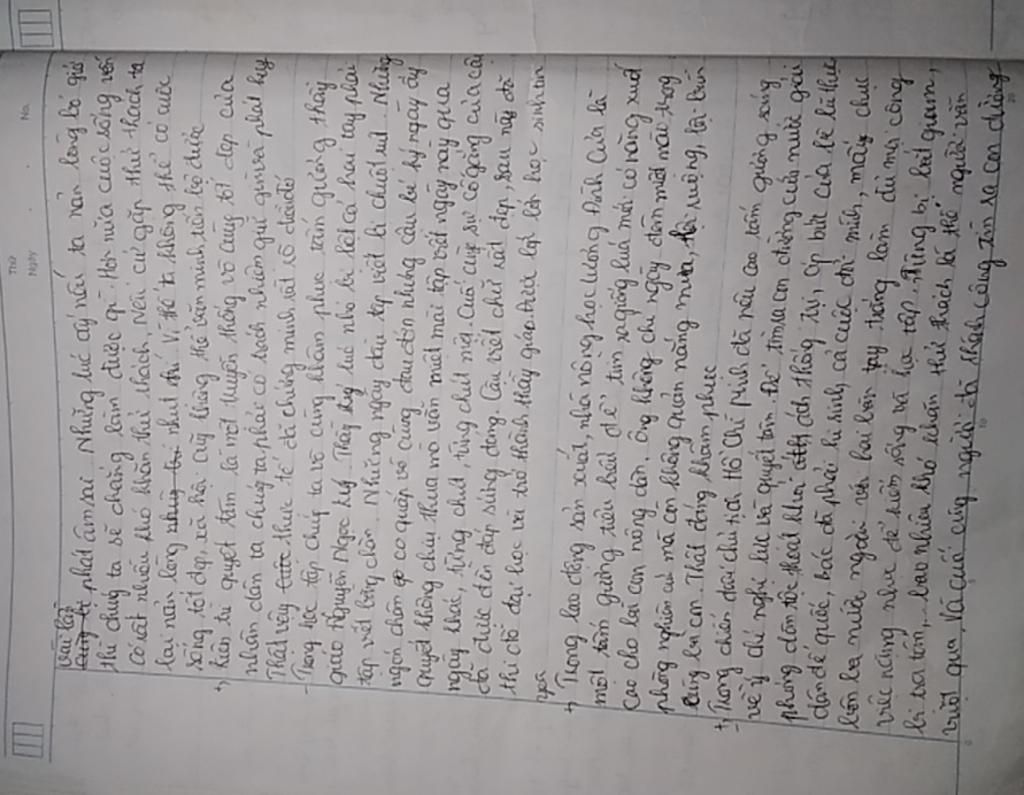 Thứ
Ngày
No.
vấp lập
phát âm sai Những lúc ấy nếu ta nản lòng bỏ giở
thì chúng ta sẽ chẳng làm được gì. Hơn nữa cuộc sống vốn
có rất nhiều khó khăn thử thách. Nếu cứ gặp thử thách ta
lại nản lòng nhụt chí Vì thế ta không thể có cuộc
sống tốt đẹp, xã hội cũg không thể văn minh, tiến bộ được
+, kiên trì quyết tâm là một truyền thống vô cùg tốt đẹp của
nhân dân ta chúg ta phải có trách nhiệm giữ gìn và phát huy
Thật vậy thực tế đã chứng minh rất rõ điều đó
- Trong học tập chúg ta vô cùng khâm phục tấm gương thầy
giáo Nguyễn Ngọc ký. Thầy ký lúc nhỏ bị liệt cả hai tay phải
tập viết bằng chân. Những ngày đầu tập viết bị chuột rút. Những
ngón chân co quắp vô cùng đau đớn nhưng cậu bé ký ngày ấy
quyết không chịu thua mà vẫn miệt mài tập viết ngày này qua
ngày khác, từng chút, từng chút một. Cuối cùg sự cố gắng của cậu
đã được đền đáp xứng đáng. Cậu viết chữ rất đẹp, sau này đã
thi đỗ đại học và trở thành thầy giáo được lớp lớp học sinh tôn
+, Trong lao động sản xuất, nhà nông học Lương Định Của là
một tấm gương tiêu biểu để tìm ra giống lúa mới có năng xuất
cao cho bà con nông dân. Ông không chỉ ngày đêm miệt mài trong
phòng nghiên cứu mà còn không quản nắng mưa, ruộng, lội bùn
cùng bà con. Thật đáng khâm phục
+, Trong chiến đấu chủ tịch Hồ Chí Minh đã nêu cao tấm gương sáng
về ý chí nghị lực và quyết tâm Để tìm ra con đường cứu nước giải
phóng dân tộc thoát khỏi ách thống trị, áp bức của bè lũ thực
dân đế quốc, bác đã phải hi sinh cả cuộc đời mình, mấy chục
năm ở nước ngoài với hai bàn tay trắng làm đủ mọi công
việc nặng nhọc để kiếm sống và học tập. Từng bị bắt giam,
bị tra tấn,.. bao nhiêu khó khăn thử thách là thế người vẫn
vượt qua, Và cuối cùng người đã thành công tìm ra con đường